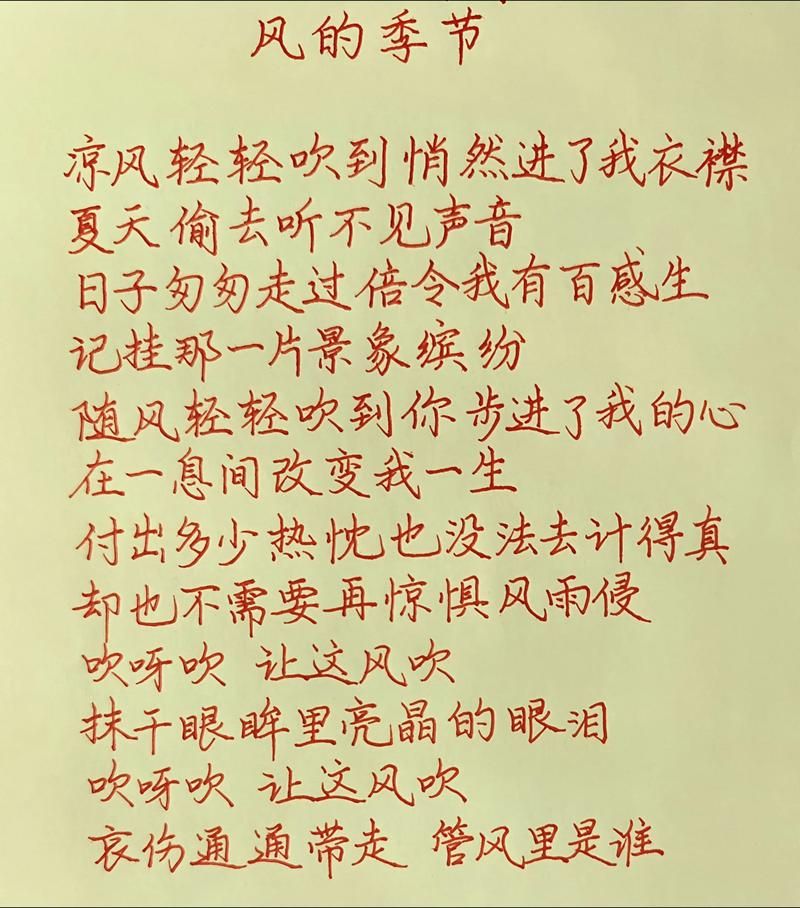 风的季节
凉风轻轻吹到悄然进了我衣襟
夏天偷去听不见声音
日子匆匆走过倍令我有百感生
记挂那一片景象缤纷
随风轻轻吹到你步进了我的心
在一息间改变我一生
付出多少热忱也没法去计得真
却也不需要再惊惧风雨侵
吹呀吹 让这风吹
抹干眼眸里亮晶的眼泪
吹呀吹 让这风吹
哀伤通通带走 管风里是谁